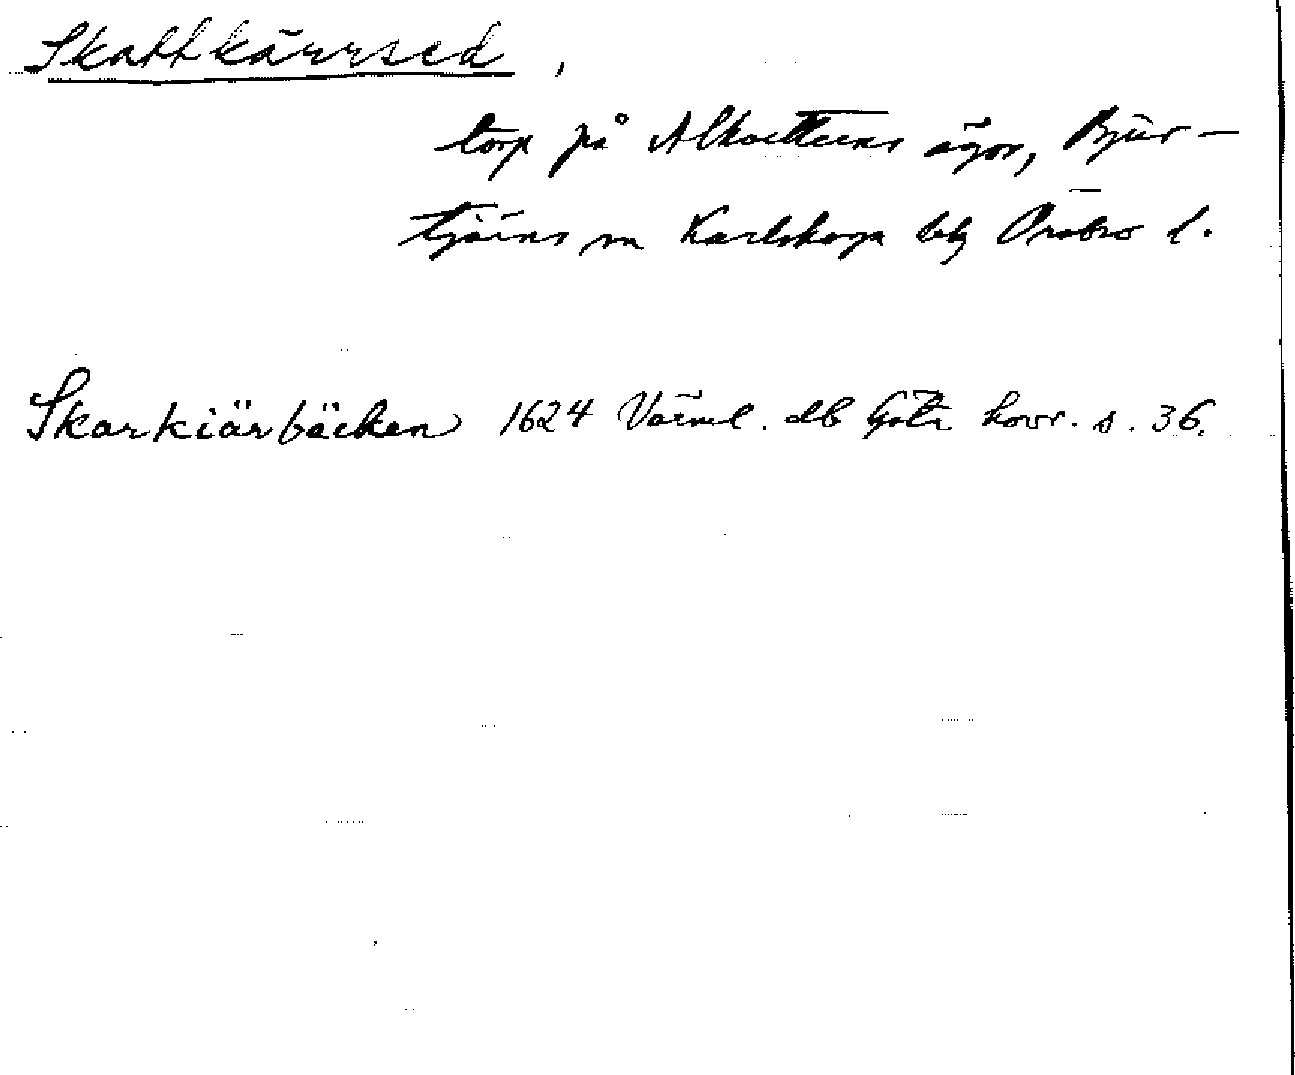 Skattkärrsed,
torp på Alkvetterns ägor, Bjur-
tjärns sn Karlskoga bg Örebro l.
Skarkiärbäcken 1624 Värml. db Göta hovr. s. 36.